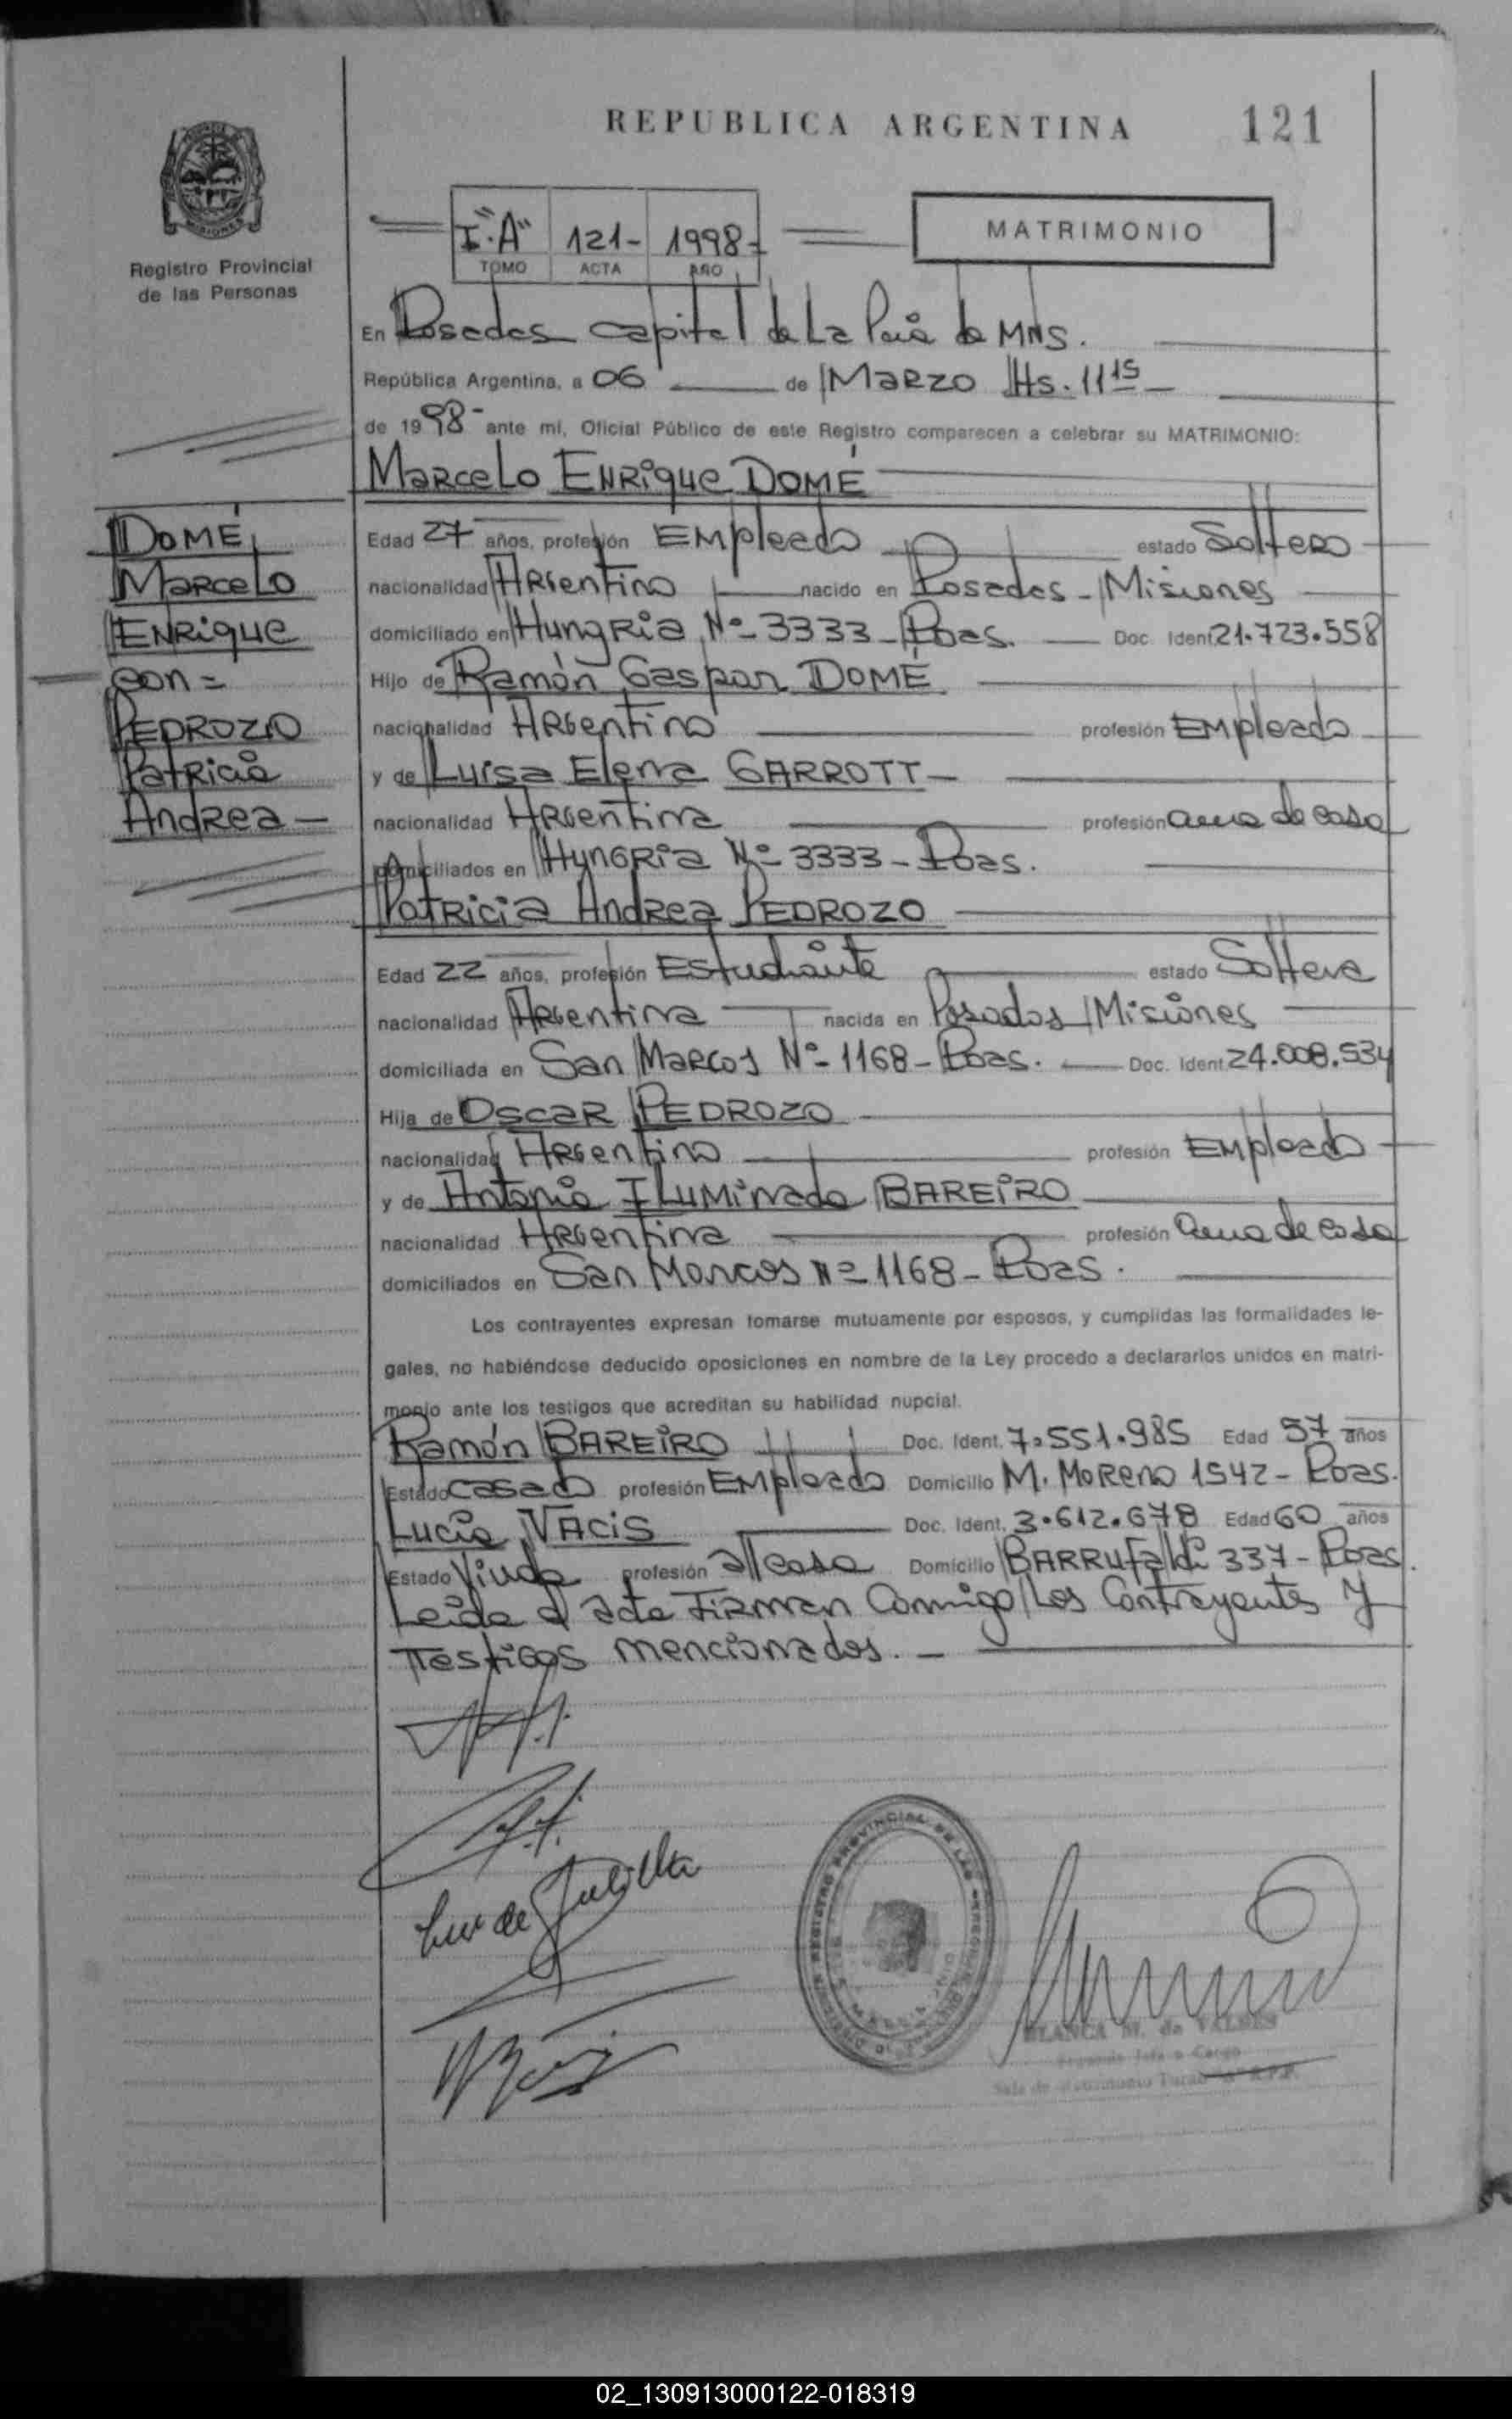 REPUBLICA ARGENTINA 121
Registro Provincial
de las Personas
I "A" 121- 1998-
TOMO ACTA AÑO
MATRIMONIO
En Posadas capital de La Pcia de MNS.
República Argentina, a 06 de Marzo Hs. 11 15
de 1998- ante mi, Oficial Público de este Registro comparecen a celebrar su MATRIMONIO:
Marcelo Enrique DOMÉ
DOMÉ,
Marcelo
Enrique
con =
PEDROZO
Patricia
Andrea -
Edad 27 años, profesión Empleado estado Soltero
nacionalidad Argentino nacido en Posadas - Misiones
domiciliado en Hungria Nº 3333 - Pdas. Doc. Ident 21.723.558
Hijo de Ramón Gaspar DOMÉ
nacionalidad Argentino profesión Empleado
y de Luisa Elena GARROTT -
nacionalidad Argentina profesión ama de casa
domiciliados en Hungria Nº 3333 - Pdas.
Patricia Andrea PEDROZO
Edad 22 años, profesión Estudiante estado Soltera
nacionalidad Argentina nacida en Posadas Misiones
domiciliada en San Marcos Nº 1168 - Pdas. Doc. Ident 24.008.534
Hija de Oscar PEDROZO
nacionalidad Argentino profesión Empleado
y de Antonia Iluminada BAREIRO
nacionalidad Argentina profesión ama de casa
domiciliados en San Marcos Nº 1168 - Pdas.
Los contrayentes expresan tomarse mutuamente por esposos, y cumplidas las formalidades le-
gales, no habiéndose deducido oposiciones en nombre de la Ley procedo a declararlos unidos en matri-
monio ante los testigos que acreditan su habilidad nupcial.
Ramón BAREIRO Doc. Ident. 7.551.985 Edad 57 años
Estado casado profesión Empleado Domicilio M. Moreno 1542 - Pdas.
Lucia VACIS Doc. Ident. 3.612.678 Edad 60 años
Estado Viuda profesión a/casa Domicilio Barrufaldi 337 - Pdas.
Leida el acta Firman Conmigo Los Contrayentes y
Testigos mencionados. -
REGISTRO PROVINCIAL DE LAS PERSONAS
BLANCA M. de VALDES
02_130913000122-018319